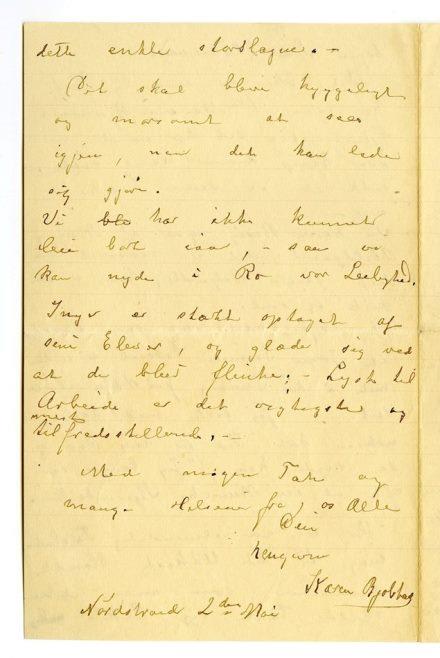 dette enkle storslagne. —
Det skal blive hyggeligt
og morsomt at sees
igjen, naar det kan lade
sig gjøre.
Vi har ikke kunnet
leie bort iaar, – saa vi
kan nyde i Ro vor Leilighed.
Inger er stærkt optaget af
sine Elever, og glæder sig ved
at de blive flinke; – Lyst til
Arbeide er det vigtigste og
mest
tilfredsstillende. —
Med megen Tak og
mange Hilsener fra os Alle
Din
hengivne
Karen
Nordstrand 2den Mai